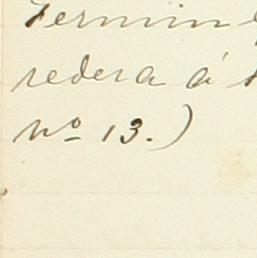 Fermin
redera á
nº 13.)